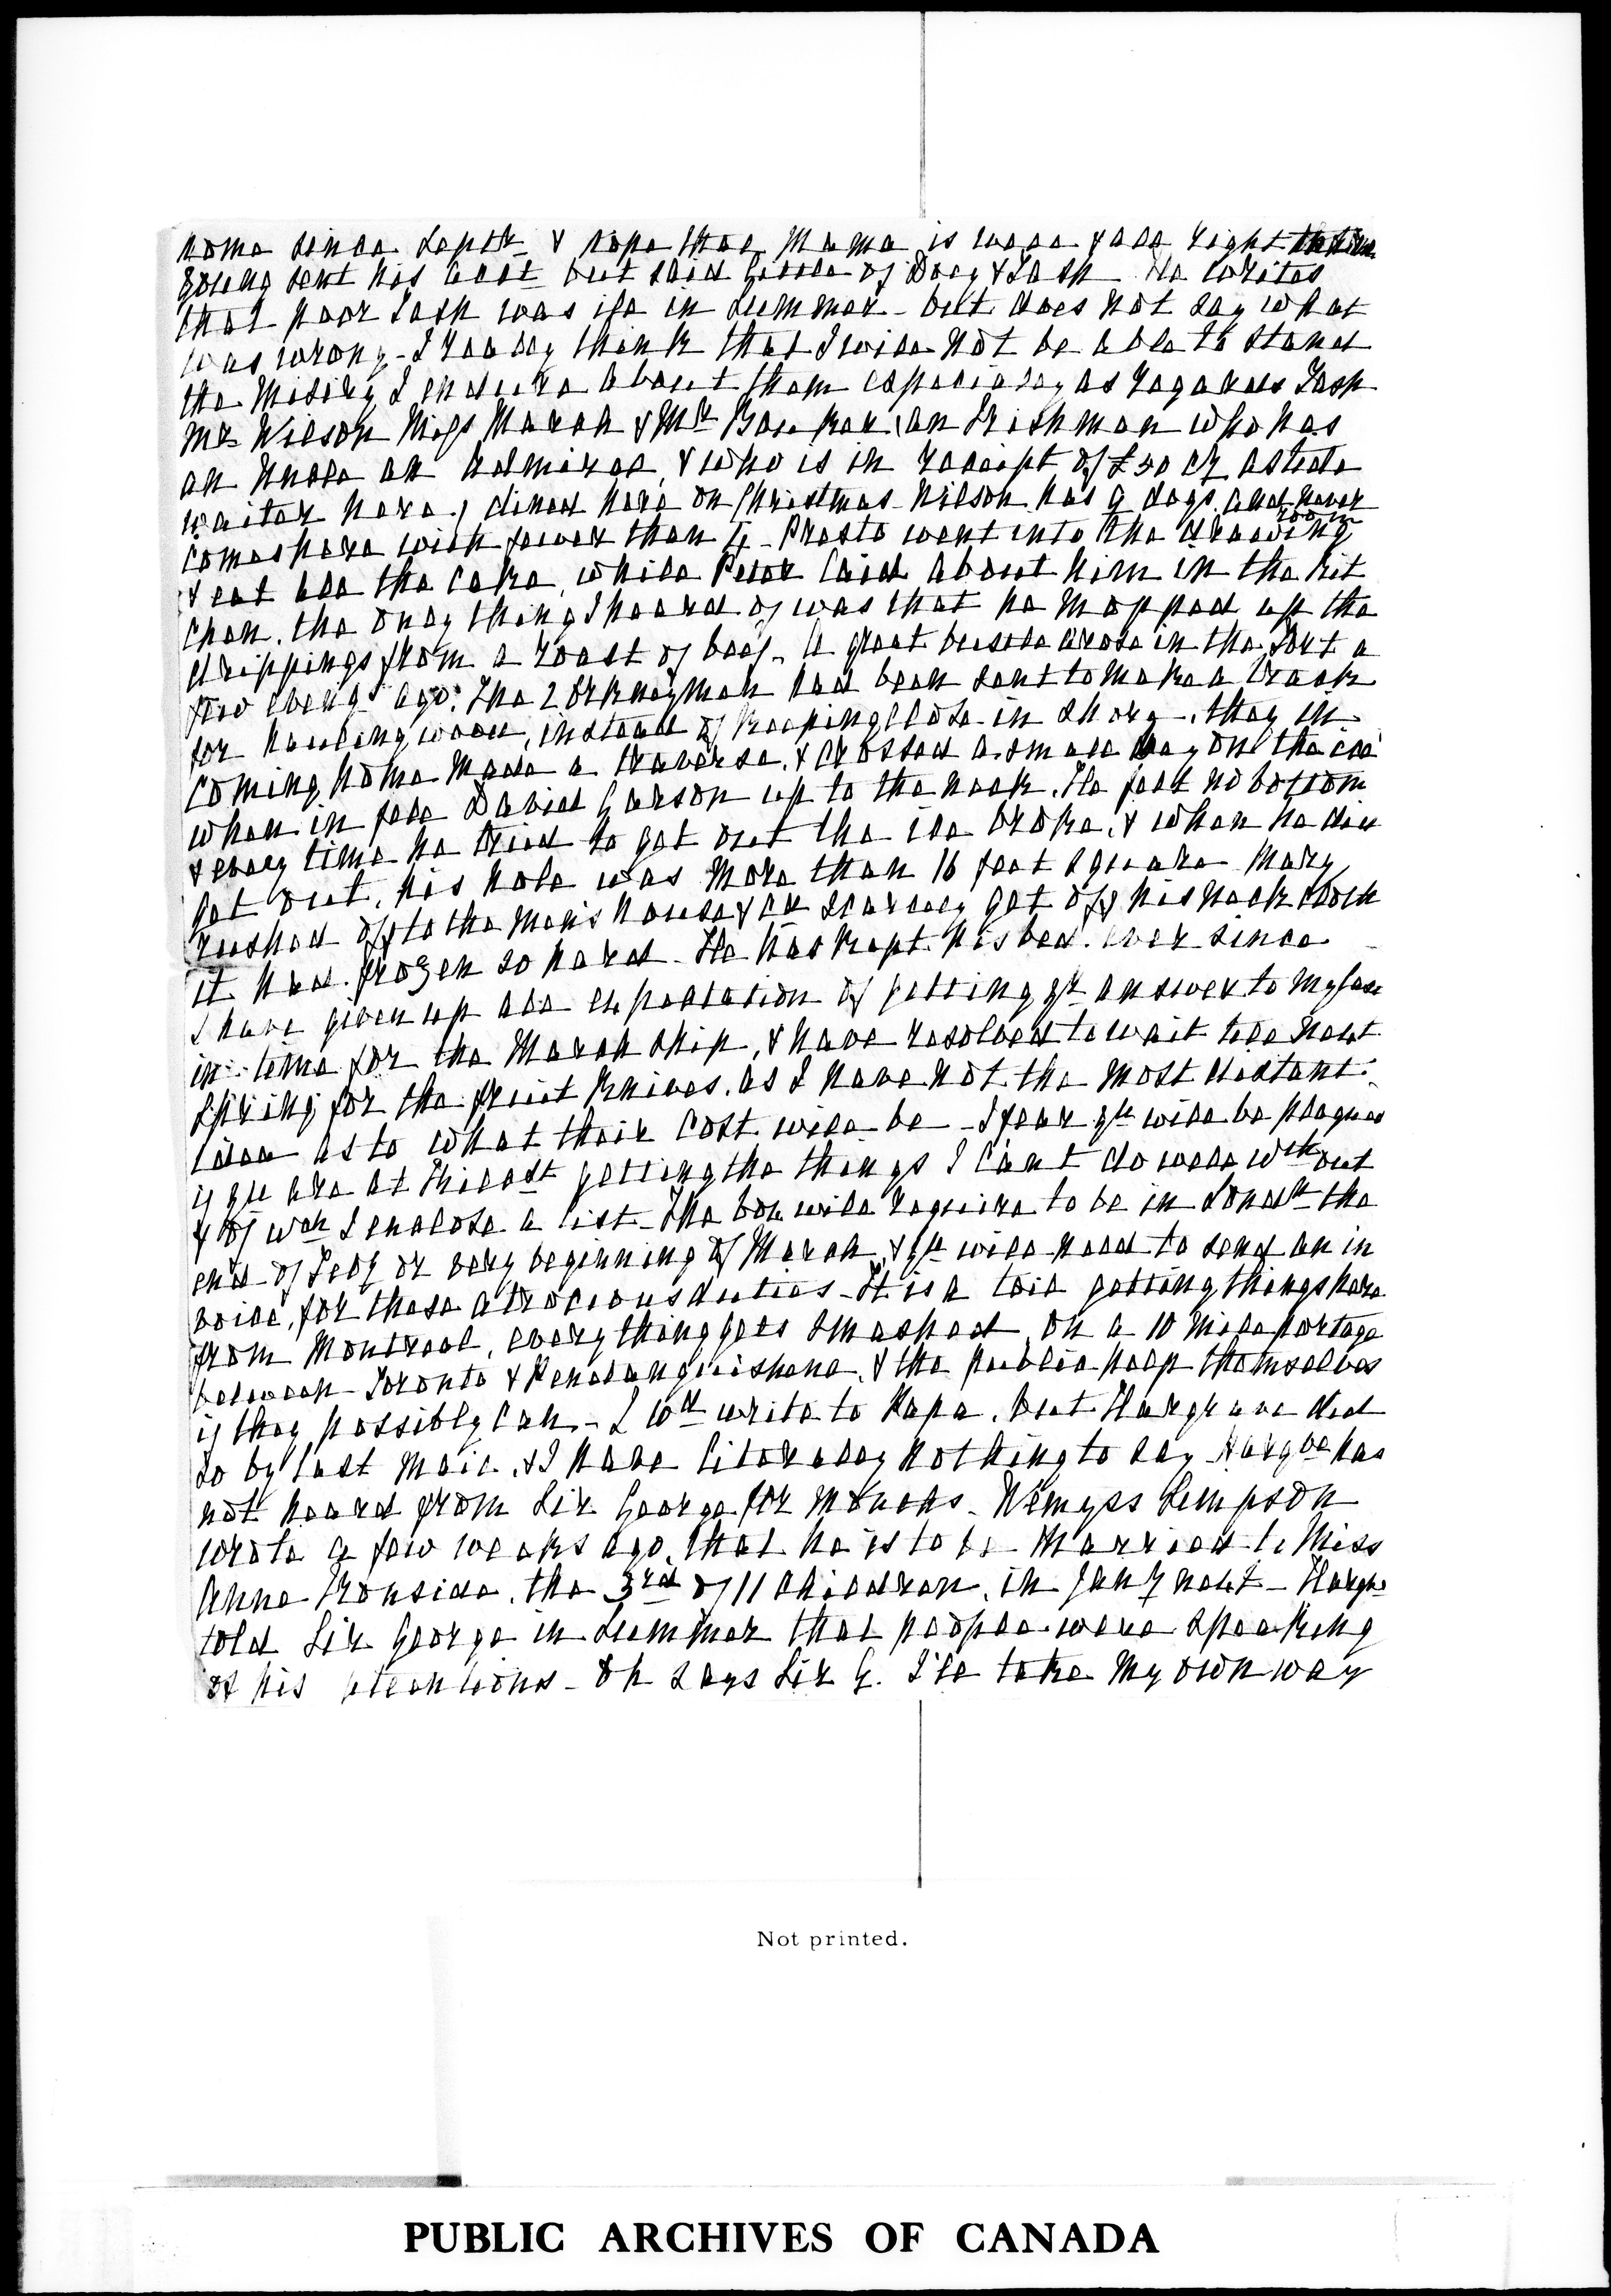 home since Septr & hope that Mama is well & all right
Young sent his acct but said little of Dogy & Tash He writes
that poor Tash was ill in Summer - but does not say what
was wrong - I really think that I will not be able to stand
the misery I endure about them especially as regards Tash
Mr Wilson Miss March & Mr Bouker (an Irishman who has
an Uncle an Admiral, & who is in receipt of £50 Cy as tide
waiter here) dined here on Christmas - Wilson has 9 dogs, and never
comes here with fewer than 4 - Presto went into the drawing room
& eat all the cake, while Peter laid about him in the kit
chen, the only thing I heard of was that he mopped up the
drippings from a roast of beef - A great bustle arose in the Fort a
few evengs ago. The 2 Orkneymen had been sent to make a track
for hauling wood, instead of keeping close in shore, they in
coming home made a traverse, & crossed a small bay on the ice
when in fell David Carson up to the neck. He felt no bottom
& every time he tried to get out the ice broke, & when he did
get out, his hole was more than 16 feet square Mary
rushed off to the men's house & cd scarcely get off his neck cloth
it had frozen so hard - He has kept his bed ever since
I have given up all expectation of getting yr answer to my last
in time for the March ship, & have resolved to wait till next
Spring for the fruit knives, as I have not the most distant
idea as to what their cost will be - I fear yu will be plagued
if yu are at Thicast getting the things I can't do well wthout
& of wch I enclose a list - The box will require to be in Londn the
end of Feby or very beginning of March, & yu will need to send an in
voice, for these atrocious duties - It is a toil getting things here
from Montreal, everything gets smashed on a 10 mile portage
between Toronto & Penetanguishene, & the public help themselves
if they possibly can - I wd write to Papa, but Hargrave did
so by last mail, & I have literally nothing to say Hargve has
not heard from Sir George for months - Wemyss Simpson
wrote a few weeks ago, that he is to be married to Miss
Anne Ironside, the 3rd of 11 children, in Jany next - Hargve
told Sir George in Summer that people were speaking
of his intentions - Oh says Sir G. I'll take my own way
Not printed.
PUBLIC ARCHIVES OF CANADA